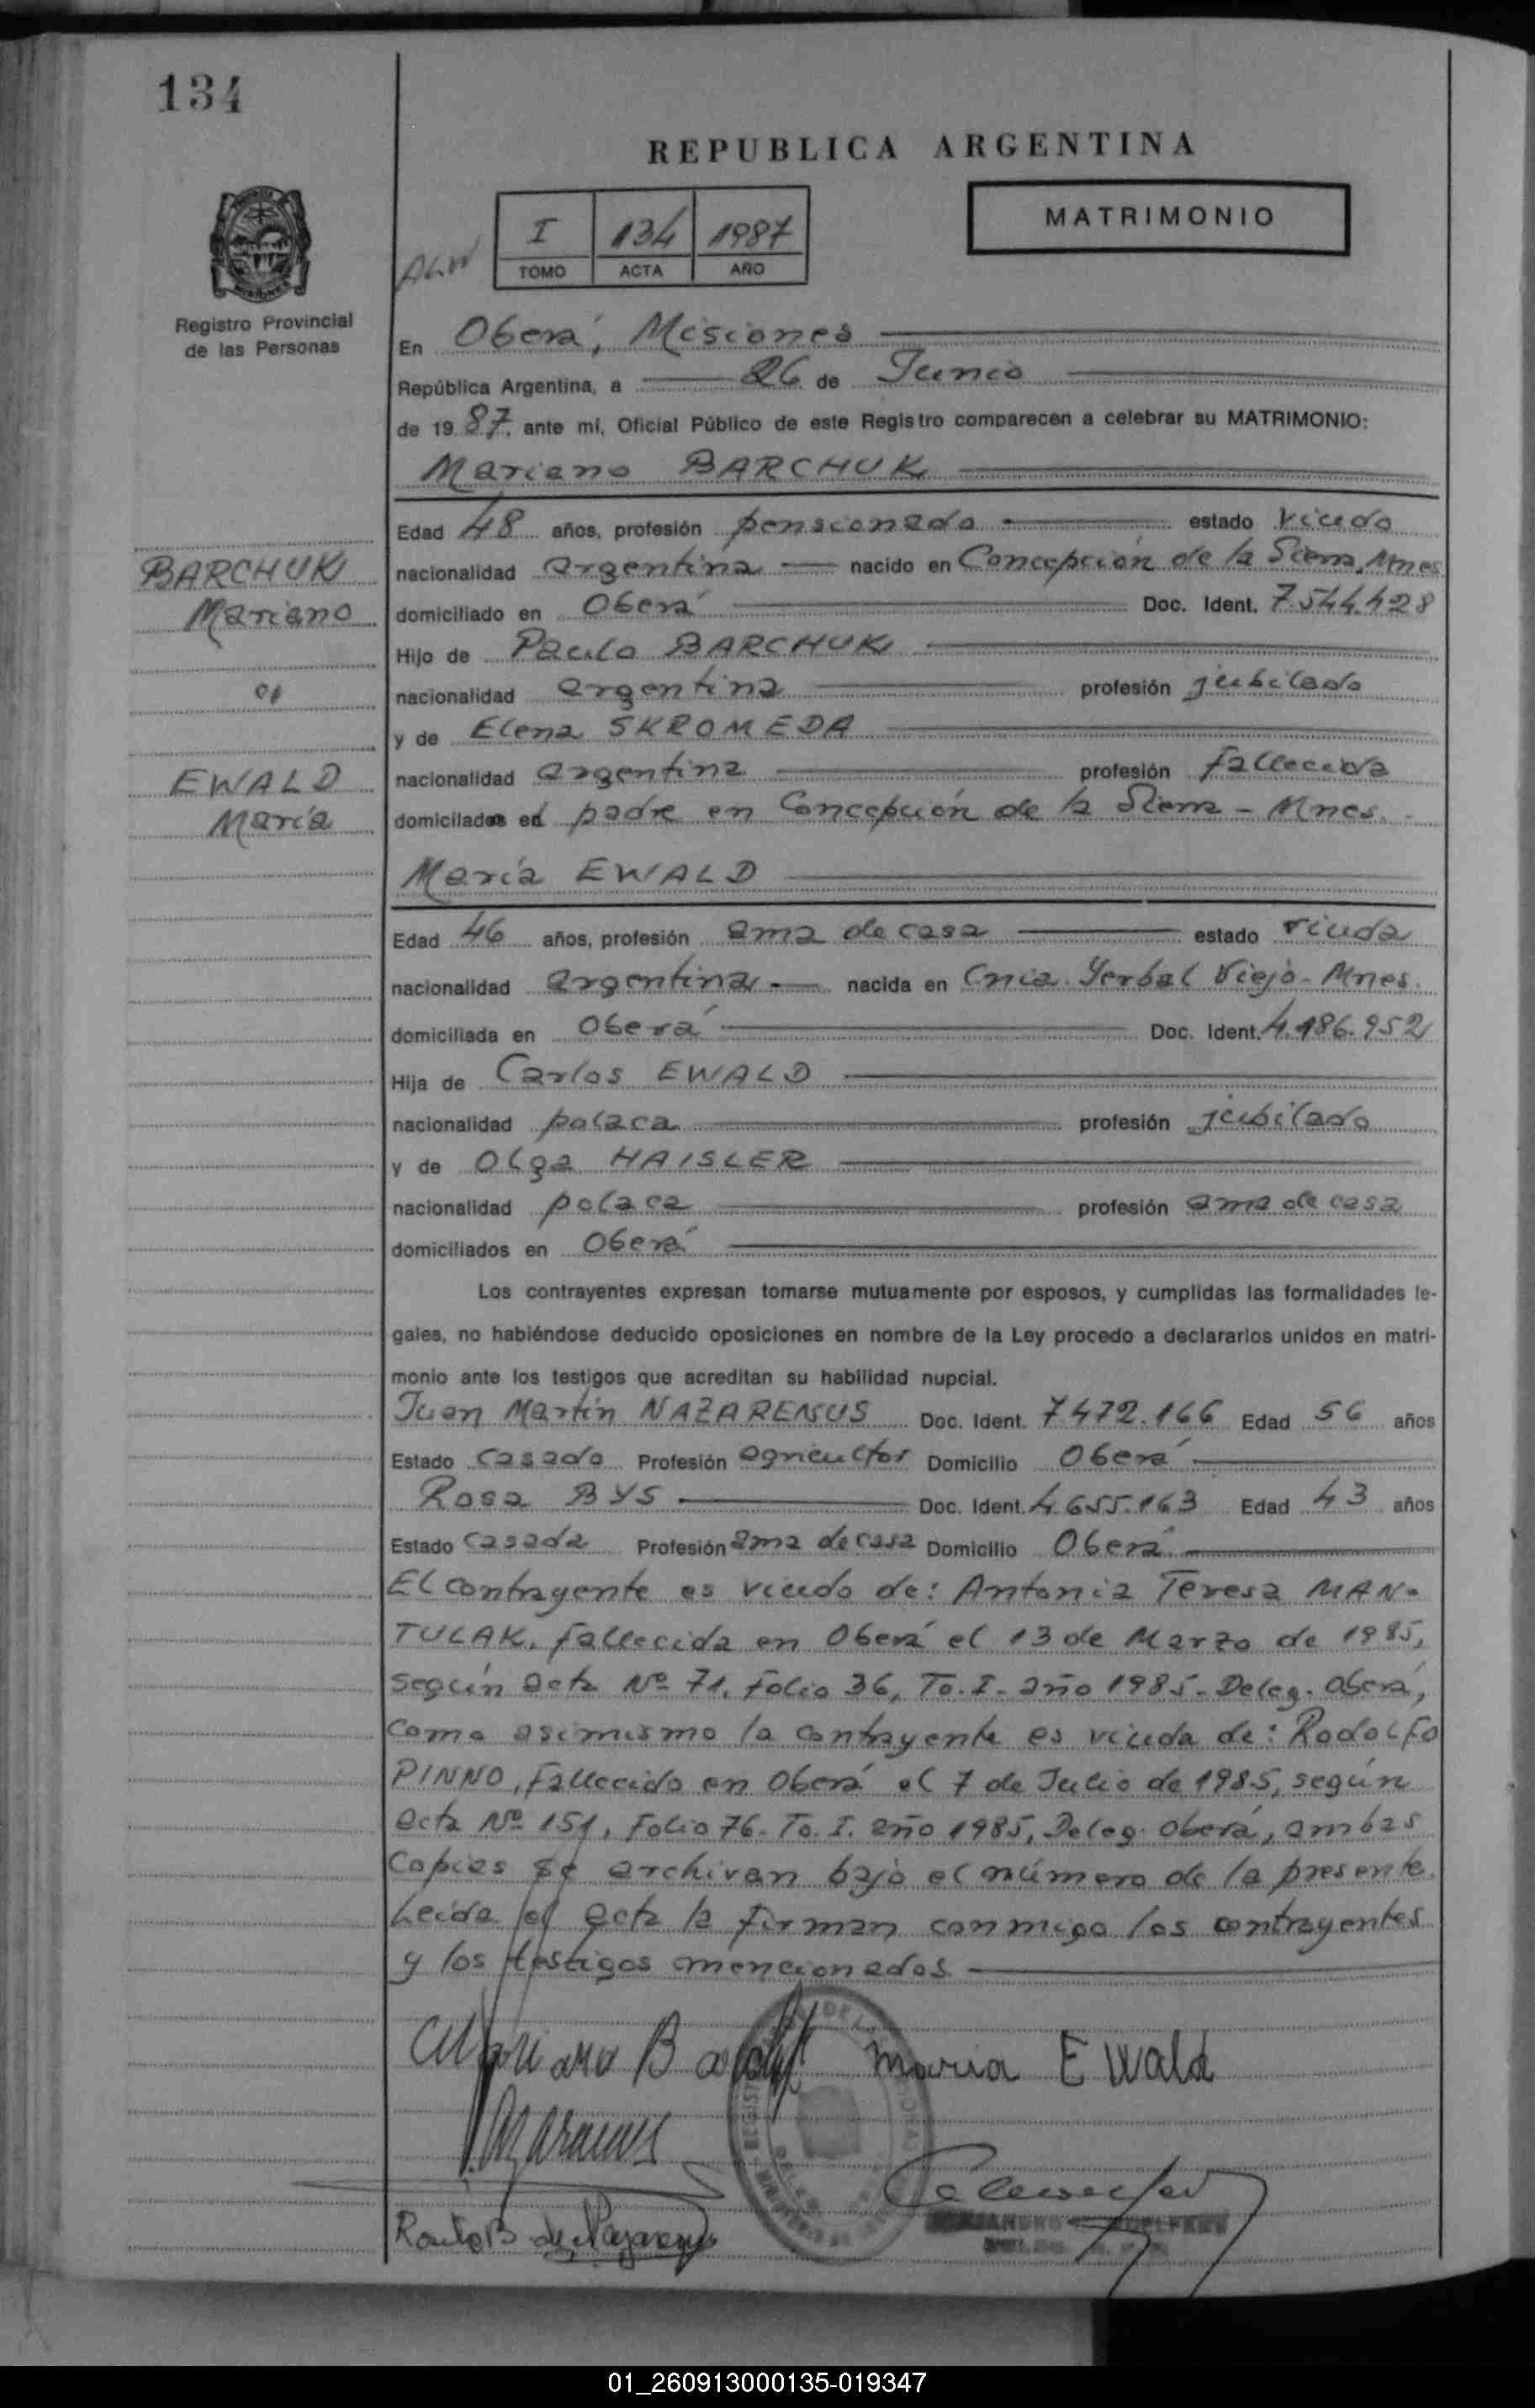 134
REPUBLICA ARGENTINA
MATRIMONIO
I 134 1987
TOMO ACTA AÑO
Registro Provincial
de las Personas
En Oberá, Misiones
República Argentina, a 26 de Junio
de 1987, ante mí, Oficial Público de este Registro comparecen a celebrar su MATRIMONIO:
Mariano BARCHUK
Edad 48 años, profesión pensionado estado viudo
BARCHUK
nacionalidad argentina nacido en Concepción de la Sierra, Mnes
Mariano
domiciliado en Oberá Doc. Ident. 7.544.428
Hijo de Paulo BARCHUK
nacionalidad argentina profesión jubilado
y de Elena SKROMEDA
EWALD
nacionalidad argentina profesión fallecida
María
domicilados en padre en Concepción de la Sierra - Mnes.
María EWALD
Edad 46 años, profesión ama de casa estado viuda
nacionalidad argentina nacida en Cnia. Yerbal Viejo - Mnes.
domiciliada en Oberá Doc. Ident. 4.186.952
Hija de Carlos EWALD
nacionalidad polaca profesión jubilado
y de Olga HAISLER
nacionalidad polaca profesión ama de casa
domiciliados en Oberá
Los contrayentes expresan tomarse mutuamente por esposos, y cumplidas las formalidades le-
gales, no habiéndose deducido oposiciones en nombre de la Ley procedo a declararlos unidos en matri-
monio ante los testigos que acreditan su habilidad nupcial.
Juan Martín NAZARENUS Doc. Ident. 7.472.166 Edad 56 años
Estado casado Profesión agricultor Domicilio Oberá
Rosa BYS Doc. Ident. 4.655.163 Edad 43 años
Estado casada Profesión ama de casa Domicilio Oberá
El contrayente es viudo de: Antonia Teresa MAN-
TULAK, fallecida en Oberá el 13 de Marzo de 1985,
según acta Nº 71, Folio 36, To. I - año 1985 - Deleg. Oberá,
como asimismo la contrayente es viuda de: Rodolfo
PINNO, fallecido en Oberá el 7 de Julio de 1985, según
acta Nº 151, Folio 76 - To. I. año 1985, Deleg. Oberá, ambas
copias se archivan bajo el número de la presente.
Leida el acta la firman conmigo los contrayentes
y los testigos mencionados
Mariano María EWald
01_260913000135-019347